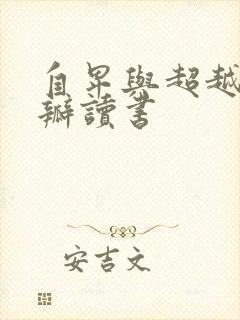 自卑與超越
瓣讀書
安吉文